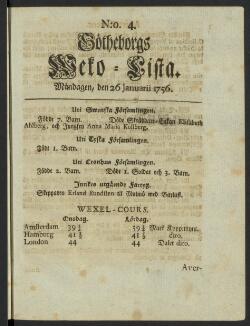 N:o. 4.
Götheborgs
Weko-Lista.
Måndagen, den 26 Januarii 1756.
Uti Swenska Församlingen.
Födde 7. Barn. Döde Enkan Elisabeth
Ahlberg, och Jungfru Anna Maria Kullberg.
Uti Tyska Församlingen.
Född 1. Barn.
Uti Cronhus Församlingen.
Födde 2. Barn. Döde 1. Soldat och 3. Barn.
Inrikes utgående Fartyg.
Skepparen Erland til Malmö med Barlast.
WEXEL-COURS.
Onsdag. Lördag.
Amsterdam 39 ½ 39 ½ Mark
Hamburg 41 ½ 41 ½ dito.
London 44 44 Daler dito.
Aver-